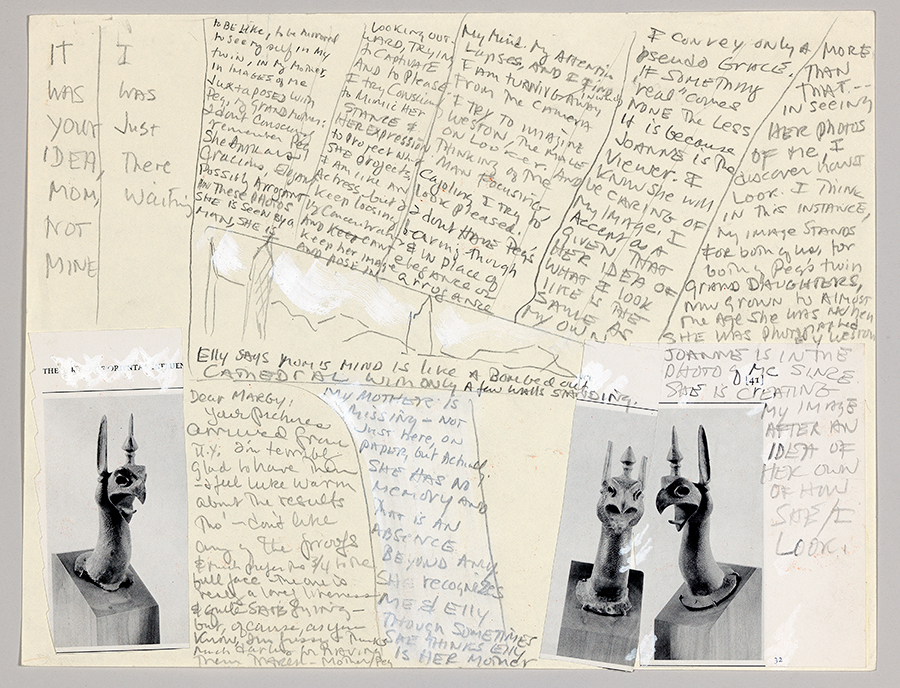 IT
WAS
YOUR
IDEA,
MOM,
NOT
MINE
I
WAS
Just
There
Waiting
to BE like, to be mirrored
to seeing self in my
twin, in my mother,
in images of me
juxtaposed with
Peg, my GRANDmother.
I don't consciously
remember Peg
She
Gracious, Elegant
Possibly Arrogant
IN THESE PHOTOS
SHE IS SEEN By A
MAN, SHE IS
Looking out-
WARD, TRYING
to CAPTIVATE
AND to Please.
I try consciously
to Mimic HER
STANCE &
HER EXPRESSION
to Project what
SHE projects.
I am like AN
Actress, but I
keep losing
my Concentration
AND KEEP CAN'T
keep her image
AND POSE IN
My Mind. My Attention
Lapses, AND I find
I AM turning AWAY
From The CAMERA
I try to imagine
WESTON, THE MALE
ON LOOKER, AND
THINKING of the
MAN Focusing,
Cajoling, I try to
look pleased.
I don't HAVE Peg's
charm, though
& IN place of
elegance or
arrogance
I CONVEY ONLY A
pseudo GRACE.
IF SOMETHING
"real" comes
NONE THE Less
it is because
JOANNE is the
Viewer. I
KNOW She will
be CARING OF
My IMAGE. I
Accept as A
GIVEN THAT
HER IDEA OF
WHAT I LOOK
LIKE IS THE
SAME AS
My OWN.
MORE
THAN
THAT --
IN seeing
HER photos
OF Me, I
discover how I
Look. I THINK
IN this INSTANCE,
My IMAGE STANDS
For both of us, for
both of Peg's twin
GRAND DAUGHTERS,
now grown to Almost
The Age SHE WAS WHEN
SHE WAS PHOTOGRAPHED
By WESTON
JOANNE IS IN THE
PHOTO of Me SINCE
SHE IS CREATING
My IMAGE
AFTER AN
IDEA OF
HER OWN
OF HOW
SHE/I
LOOK.
[41]
Elly SAYS MOM'S MIND IS LIKE A BOMBed out
CATHEDRAL with only A few walls STANDING.
THE
Dear MARGY:
Your pictures
arrived from
N.Y. I'm terribly
glad to have them
I feel luke warm
about the results
Tho' - don't like
any of the proofs
& much prefer no 3/4 to the
full face
really a long liveness
& quite
but, of cause, as you
know, I'm fussy - Thanks
Much
Them - Mother/Peg
My MOTHER IS
MISSING - NOT
Just Here, ON
PAPER, but Actually.
SHE HAS NO
MEMORY AND
THAT IS AN
ABSENCE
BEYOND Any.
SHE recognizes
ME & ELLY
THOUGH SOMETIMES
SHE THINKS Elly
IS HER MOTHER
32